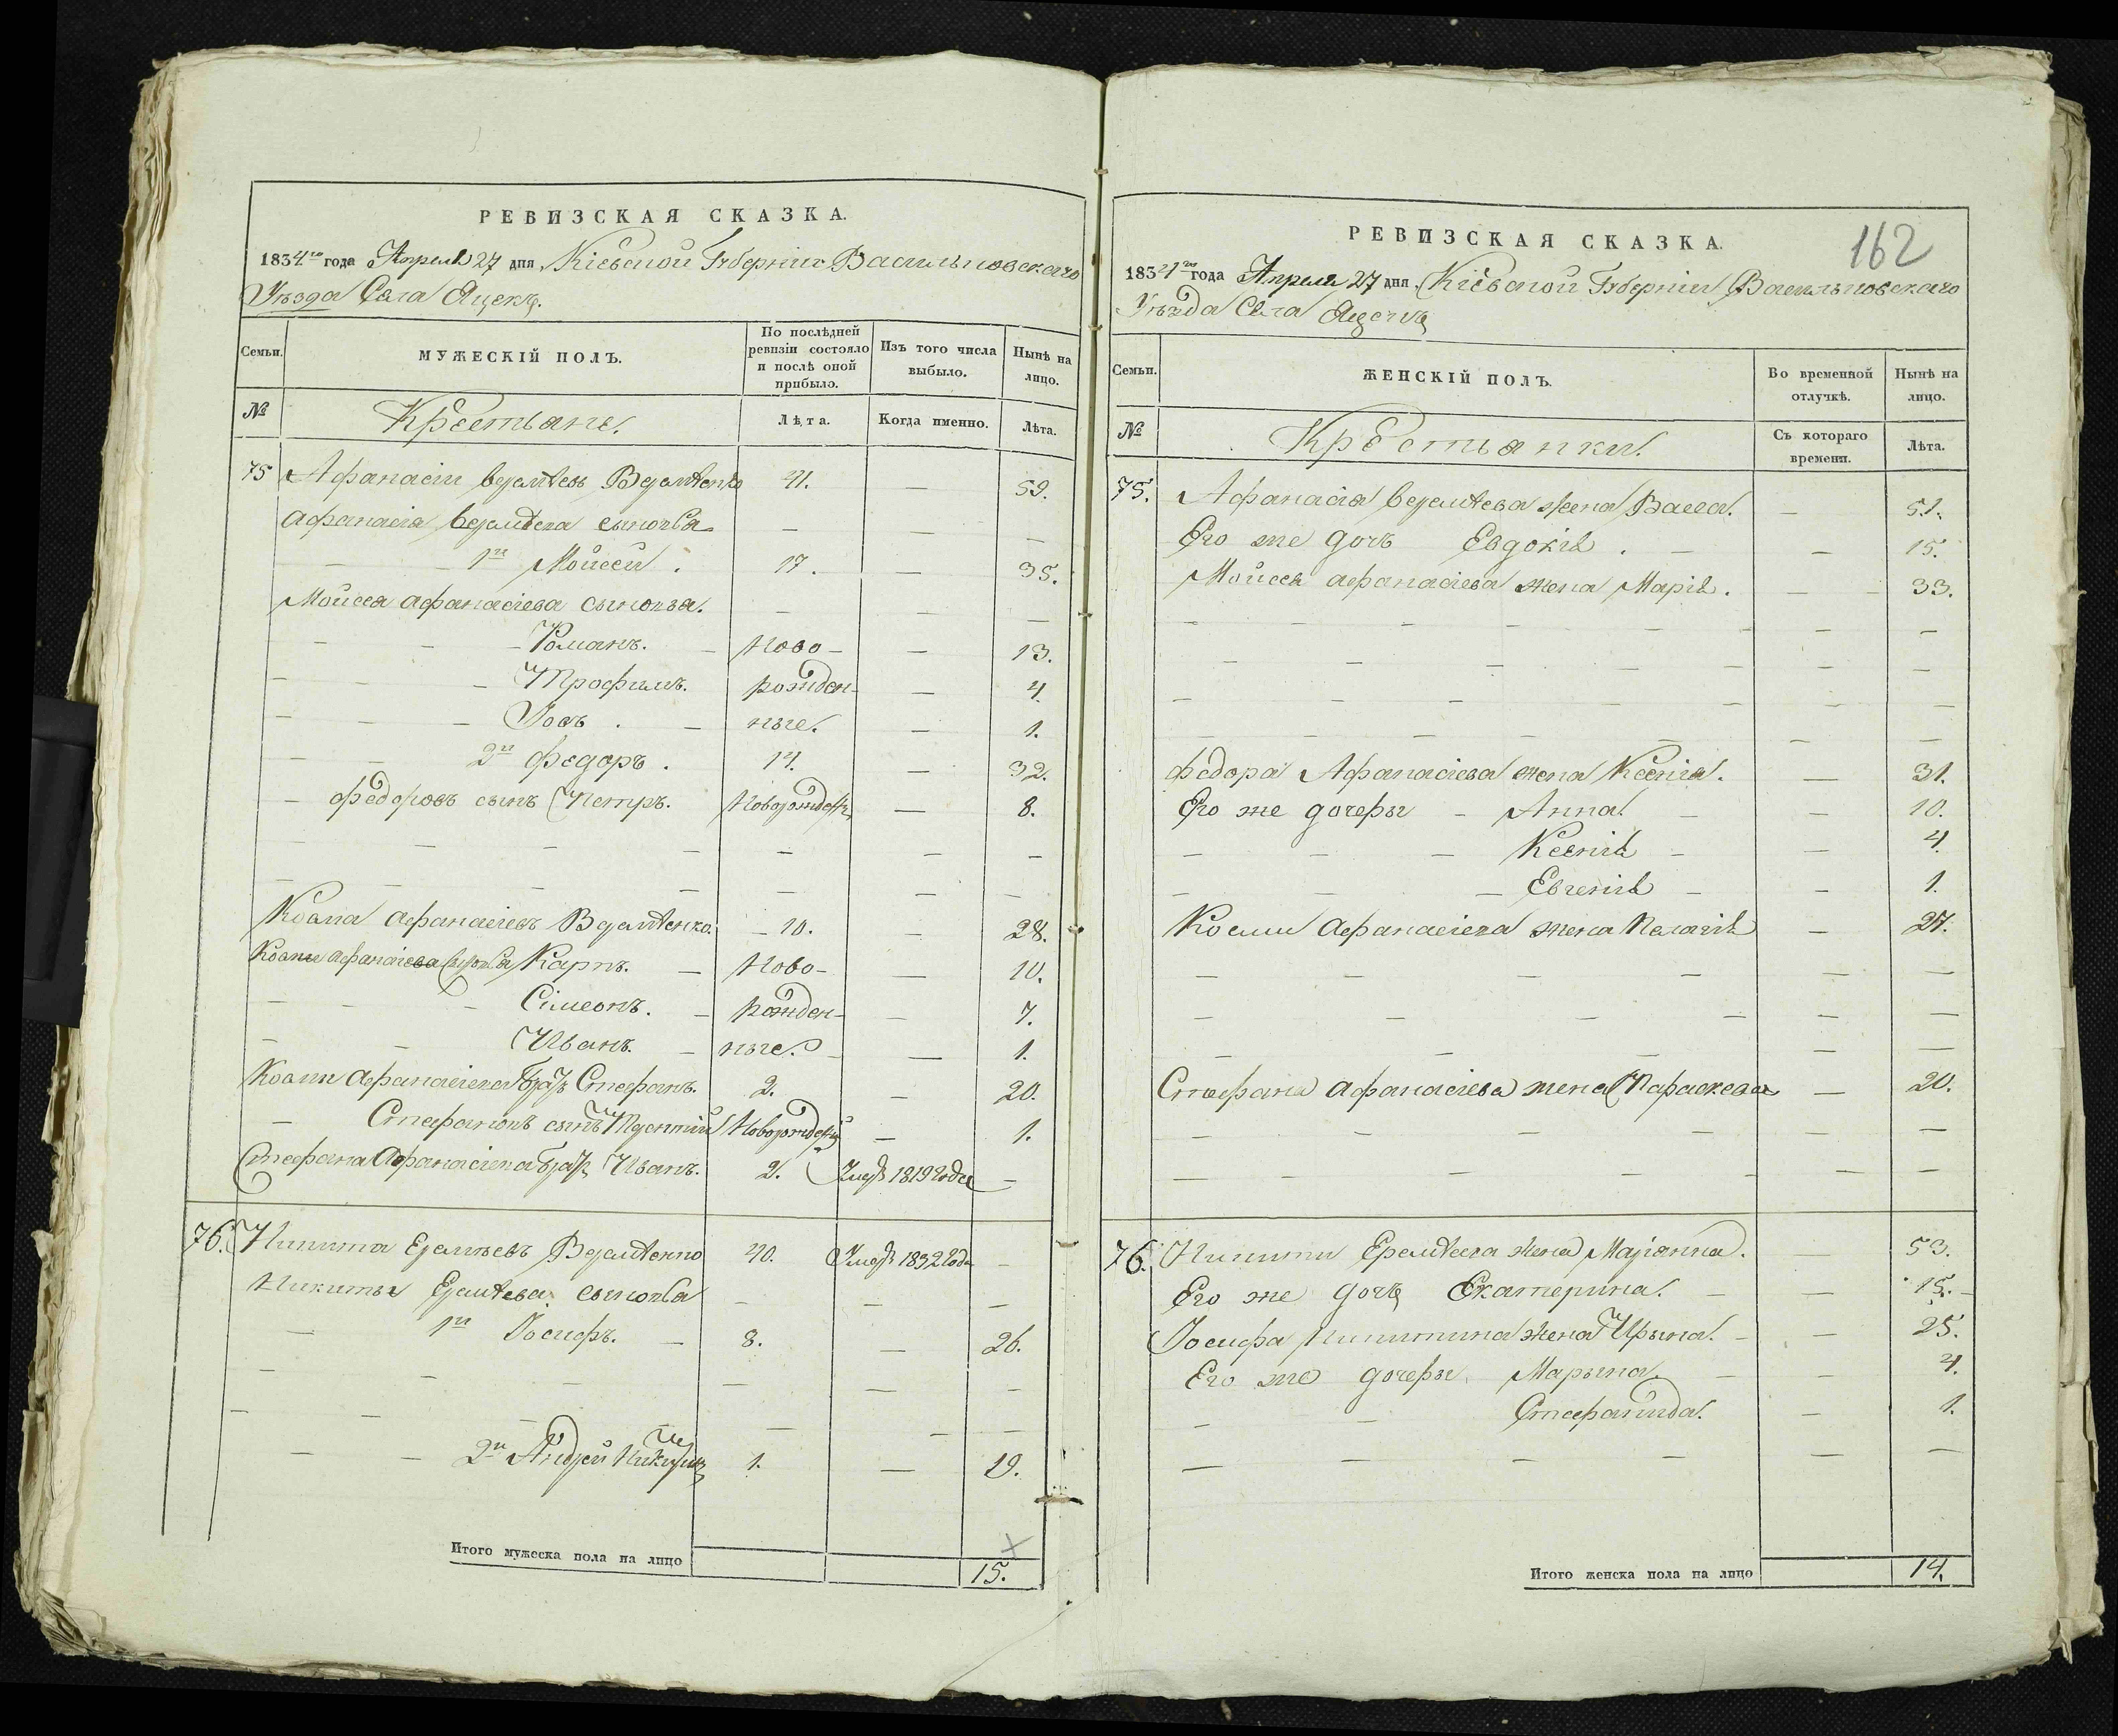 РЕВИЗСКАЯ СКАЗКА.
1834го года Апреля 27 дня Кіевской Губерніи Васильковскаго
Уѣзда Села Яцекъ.
Семьи.
МУЖЕСКІЙ ПОЛЪ.
По послѣдней ревизіи состояло и послѣ оной прибыло.
Изъ того числа выбыло.
Нынѣ на лицо.
№
Крестьяне.
Лѣта.
Когда именно.
Лѣта.
75 Афанасій Веремѣевъ 41. — 59.
Афанасія Веремѣева сыновья — — —
1й Мойсей. 17. — 35.
Мойсея Афанасіева сыновья. — — —
Романъ. Ново- — 13.
Трофимъ. рожден- — 4.
Іовъ. ные. — 1.
2й Федоръ. 14. — 32.
Федоровъ сынъ Петръ. Новорожден — 8.
Козма Афанасіевъ 10. — 28.
Козми Афанасіева сыновья Карпъ. Ново- — 10.
Сімеонъ. рожден- — 7.
Иванъ. ные. — 1.
Козми Афанасіева братъ Стефанъ. 2. — 20.
Стефановъ сынъ Новорожден — 1.
Стефана Афанасіева братъ Иванъ. 2. Умеръ 1819 года —
76. Никита Еремѣевъ 40. Умеръ 1832 года —
Никиты Еремѣева сыновья — — —
1й Іосифъ. 8. — 26.
2й Андрей 1. — 19.
Итого мужеска пола на лицо 15.
162
РЕВИЗСКАЯ СКАЗКА.
1834го года Апреля 27 дня Кіевской Губерніи Васильковскаго
Уѣзда Села Яцекъ
Семьи.
ЖЕНСКІЙ ПОЛЪ.
Во временной отлучкѣ.
Нынѣ на лицо.
№
Крестьянки.
Съ котораго времени.
Лѣта.
75. Афанасія Веремѣева жена Васса. — 51.
Его же дочь Евдокія. — 15.
Мойсея Афанасіева жена Марія. — 33.
Федора Афанасіева жена Ксенія. — 31.
Его же дочеры Анна. — 10.
Ксенія — 4.
Евгенія — 1.
Козми Афанасіева жена Пелагія — 27.
Стефана Афанасіева жена Параскева — 20.
76. Никити Еремѣева жена Маріянна. — 53.
Его же дочь Екатерина. — 15.
Іосифа Никитина жена Ирына. — 25.
Его же дочеры Марына. — 4.
Стефанида. — 1.
Итого женска пола на лицо 14.